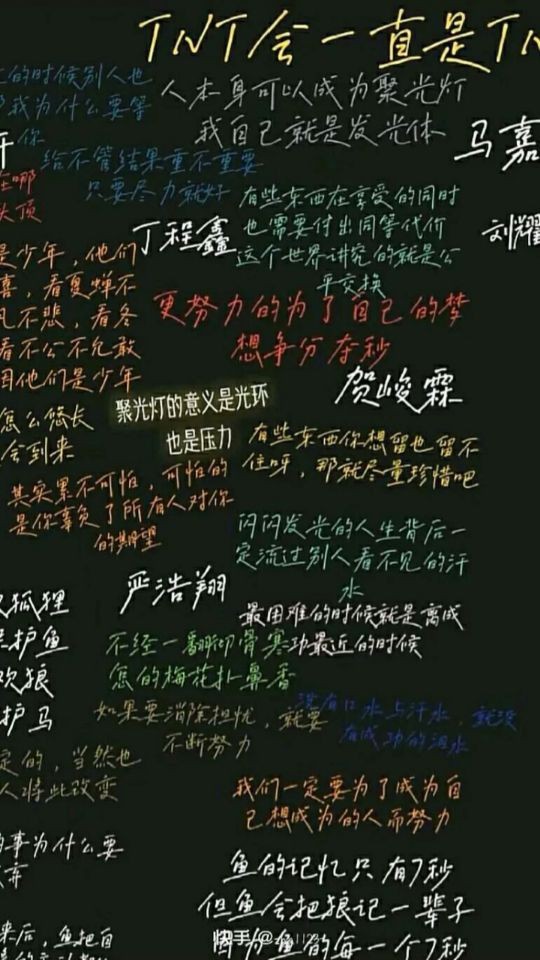 TNT会一直是TN
的时候别人也
我为什么要等
你
人本身可以成为聚光灯
我自己就是发光体
马嘉
给不管结果重不重要
只要尽力就好
在哪
头顶
有些东西在享受的同时
也需要付出同等代价
这个世界讲究的就是公
平交换
丁程鑫
刘耀
是少年，他们
喜，看夏蝉不
不悲，看冬
看不公不允敢
因他们是少年
更努力的为了自己的梦
想争分夺秒
贺峻霖
聚光灯的意义是光环
也是压力
怎么悠长
会到来
有些东西你想留也留不
住呀，那就尽量珍惜吧
其实累不可怕，可怕的
是你辜负了所有人对你
的期望
闪闪发光的人生背后一
定流过别人看不见的汗
水
严浩翔
狐狸
护鱼
欢狼
护马
最困难的时候就是离成
功最近的时候
不经一翻彻骨寒
怎的梅花扑鼻香
如果要消除担忧，就要
不断努力
没有口水与汗水，就没
有成功的泪水
定的，当然也
人将此改变
我们一定要为了成为自
己想成为的人而努力
事为什么要
弃
鱼的记忆只有7秒
但鱼会把狼记一辈子
因为鱼的每一个7秒
来后，鱼把自
快手